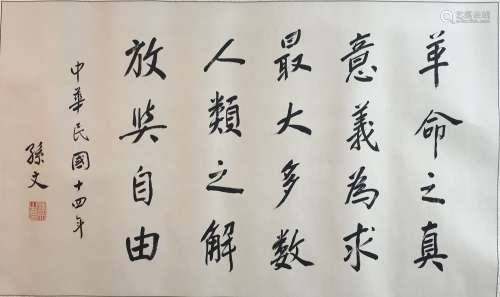 革命之真
意義為求
最大多数
人類之解
放與自由
中華民國十四年
孫文